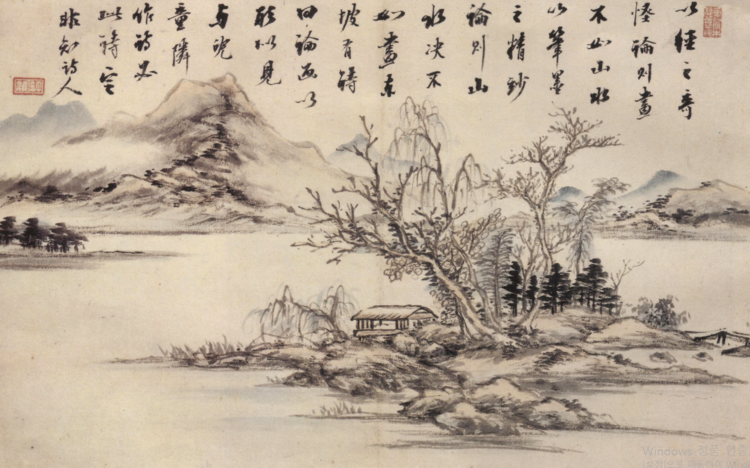 以徑之奇
怪論則畫
不如山水
以筆墨
之精妙
論則山
水決不
如畫東
坡有詩
曰論画以
形似見
与兒
童隣
作詩必
此詩定
非知詩人
Windows 정품 인